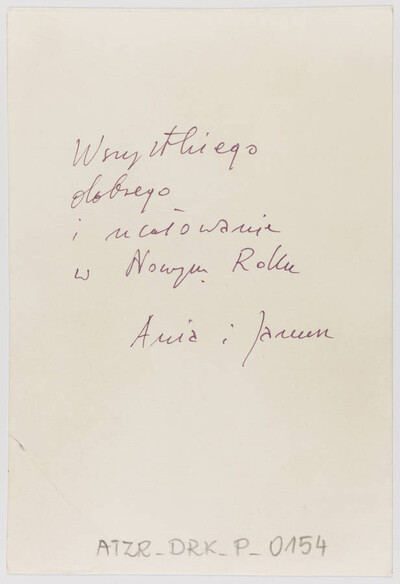 Wszystkiego
dobrego
i ucałowania
w Nowym Roku
Ania i Janusz
ATZR_DRK_P_0154